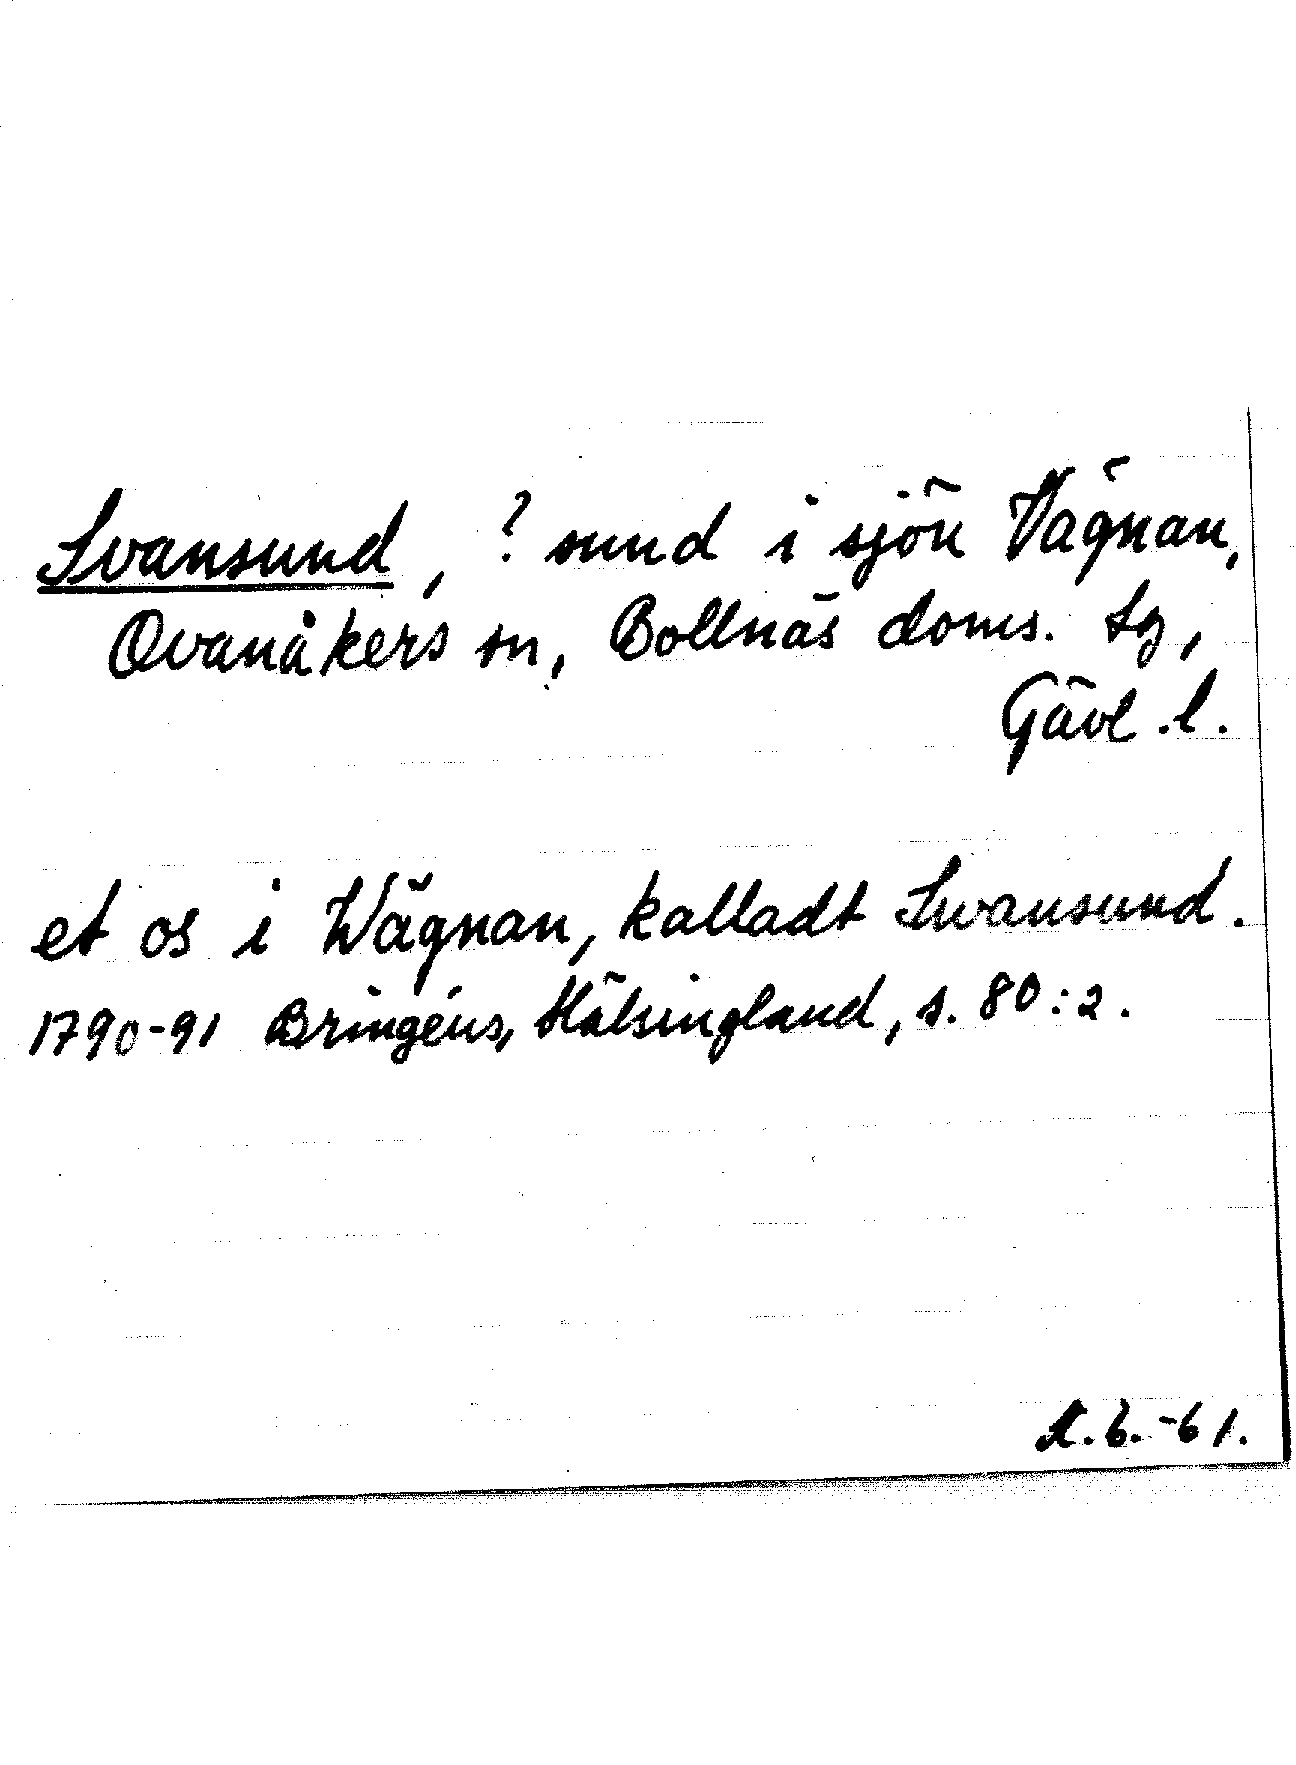 Svansund, ? sund i sjön Vägnan,
Ovanåkers sn, Bollnäs doms. tg,
Gävl. l.
et os i Wägnan, kalladt Swansund.
1790-91 Bringéus, Hälsingland, s. 80:2.
A.b.-61.